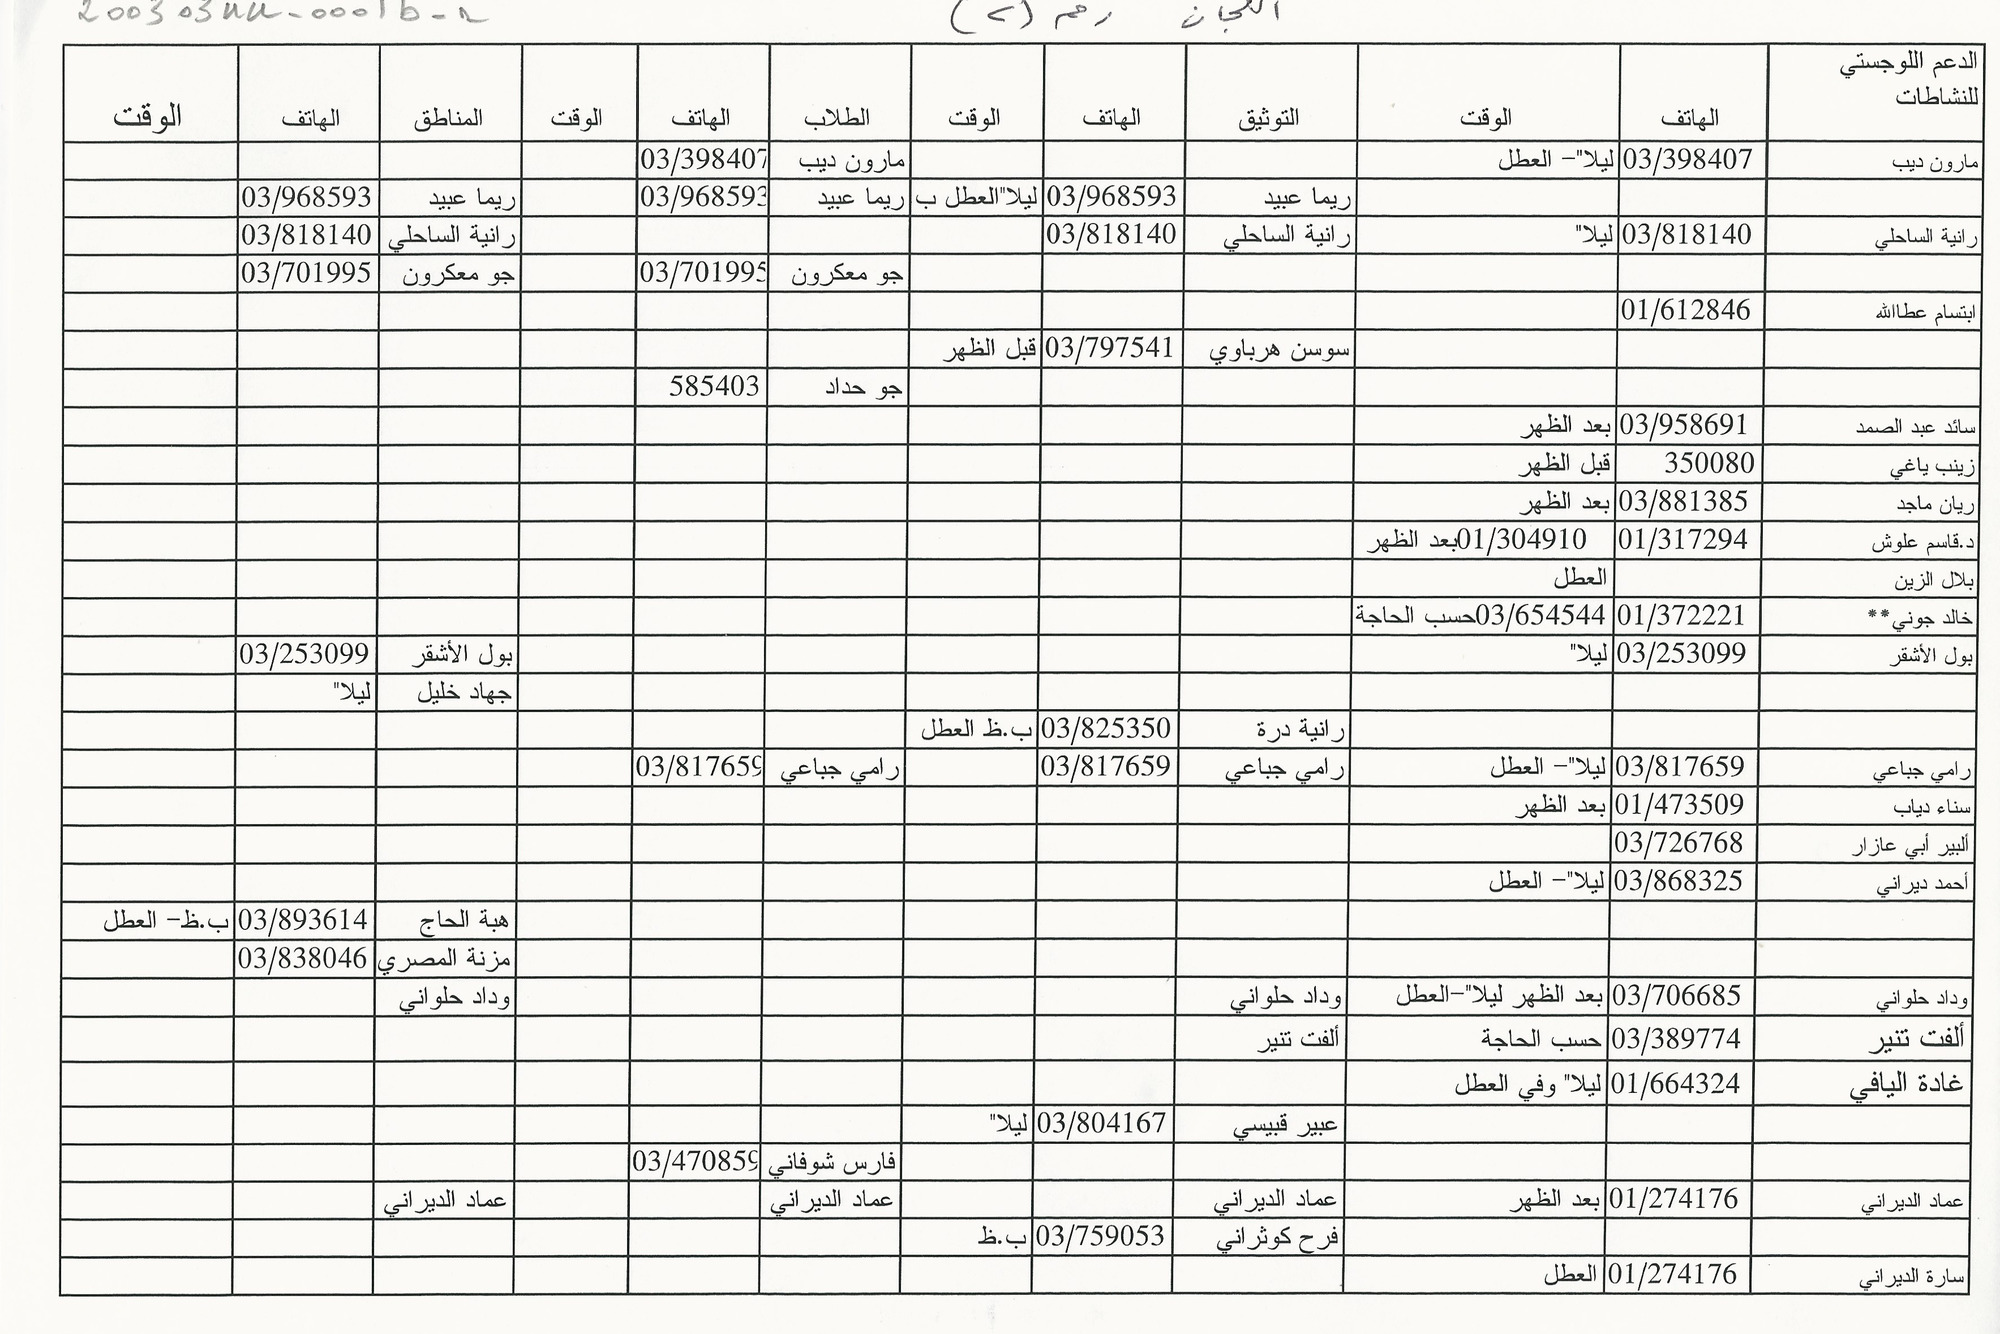 اللجان رقم (٢)
الدعم اللوجستي للنشاطات الهاتف الوقت التوثيق الهاتف الوقت الطلاب الهاتف الوقت المناطق الهاتف الوقت
مارون ديب 03/398407 ليلا"– العطل مارون ديب 03/398407
ريما عبيد 03/968593 ليلا"العطل ب ريما عبيد 03/968593 ريما عبيد 03/968593
رانية الساحلي 03/818140 ليلا" رانية الساحلي 03/818140 رانية الساحلي 03/818140
جو معكرون 03/701995 جو معكرون 03/701995
ابتسام عطاالله 01/612846
سوسن هرباوي 03/797541 قبل الظهر
جو حداد 585403
سائد عبد الصمد 03/958691 بعد الظهر
زينب ياغي 350080 قبل الظهر
ريان ماجد 03/881385 بعد الظهر
د.قاسم علوش 01/317294 01/304910بعد الظهر
بلال الزين العطل
خالد جوني** 01/372221 03/654544حسب الحاجة
بول الأشقر 03/253099 ليلا" بول الأشقر 03/253099
جهاد خليل ليلا"
رانية درة 03/825350 ب.ظ العطل
رامي جباعي 03/817659 ليلا"– العطل رامي جباعي 03/817659 رامي جباعي 03/817659
سناء دياب 01/473509 بعد الظهر
ألبير أبي عازار 03/726768
أحمد ديراني 03/868325 ليلا"– العطل
هبة الحاج 03/893614 ب.ظ– العطل
مزنة المصري 03/838046
وداد حلواني 03/706685 بعد الظهر ليلا"–العطل وداد حلواني وداد حلواني
ألفت تنير 03/389774 حسب الحاجة ألفت تنير
غادة اليافي 01/664324 ليلا" وفي العطل
عبير قبيسي 03/804167 ليلا"
فارس شوفاني 03/470859
عماد الديراني 01/274176 بعد الظهر عماد الديراني عماد الديراني عماد الديراني
فرح كوثراني 03/759053 ب.ظ
سارة الديراني 01/274176 العطل